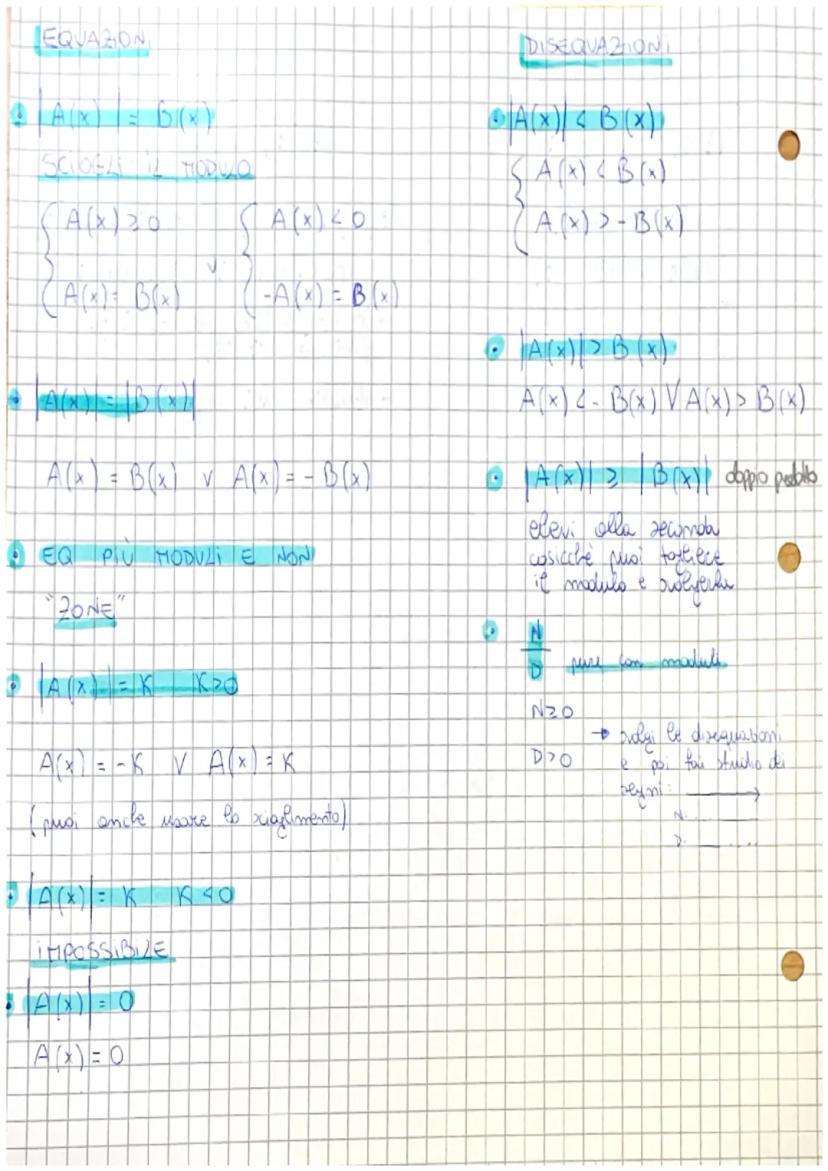 EQUAZIONI
|A(x)| = B(x)
SCIOGLI IL MODULO
{ A(x) ≥ 0
{ A(x) = B(x)
v
{ A(x) < 0
{ -A(x) = B(x)
|A(x)| = |B(x)|
A(x) = B(x) v A(x) = - B(x)
EQ PIÙ MODULI E NON
"ZONE"
|A(x)| = K K>0
A(x) = -K V A(x) = K
(puoi anche usare lo scioglimento)
|A(x)| = K K<0
IMPOSSIBILE
|A(x)| = 0
A(x) = 0
DISEQUAZIONI
|A(x)| < B(x)
{ A(x) < B(x)
{ A(x) > - B(x)
|A(x)| > B(x)
A(x) < - B(x) V A(x) > B(x)
|A(x)| ≥ |B(x)| doppio
elevi alla seconda
cosicchè puoi togliere
il modulo e
N
D
pure con moduli
N≥0
D>0
→ svolgi le disequazioni
e poi fai studio dei
segni:
N.
D.